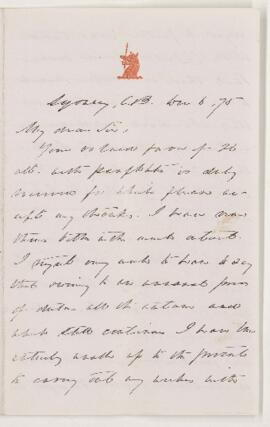 Sydney, C.B. Dec 6, 75
My dear Sir,
Your valued favor of 26
ult. with pamphlets is duly
received for which please ac-
cept my thanks. I have read
them both with much interest.
I regret very much to have to say
that owing to an unusual press
of duties all the autumn and
which still continues I have been
entirely unable up to the present
to carry out my wishes with